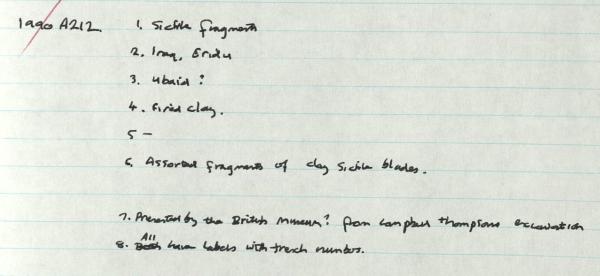 1990 A212. 1. Sickle fragments
2. Iraq, Eridu
3. Ubaid ?
4. Fired clay.
5 -
6. Assorted fragments of clay sickle blades.
7. Presented by the British Museum? from Campbell Thompsons excavation
8. All have labels with trench numbers.